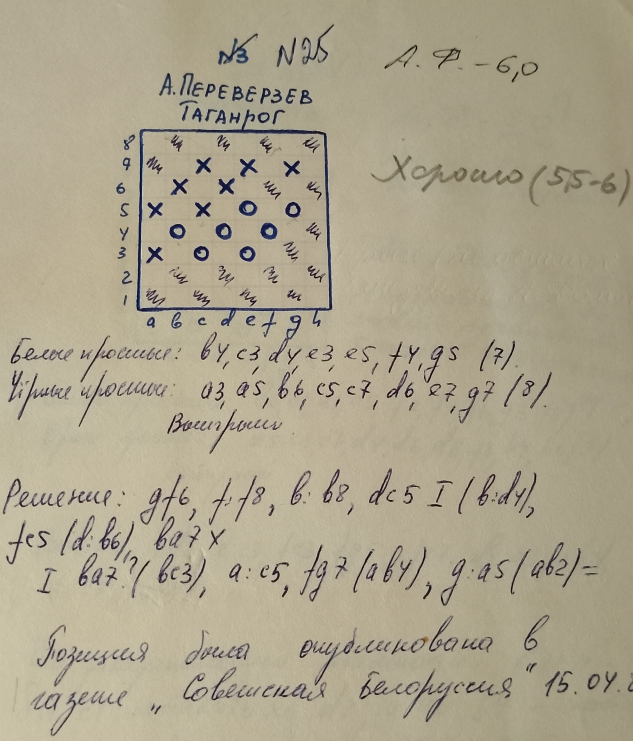 N3 N25
А. Ф. – 6,0
А. ПЕРЕВЕРЗЕВ
ТАГАНРОГ
Хорошо (5,5-6)
8
7
6
5
4
3
2
1
a b c d e f g h
Белые простые: b4, c3, d4, e3, e5, f4, g5 (7).
Чёрные простые: a3, a5, b6, c5, c7, d6, e7, g7 (8).
Выигрыш
Решение: gf6, f:f8, b:b8, dc5 I (b:d4),
fe5 (d:b6), ba7 x
I ba7? (bc3), a:c5, fg7 (ab4), g:a5 (ab2) =
Позиция была опубликована в
газете „Советская Белоруссия" 15.04.